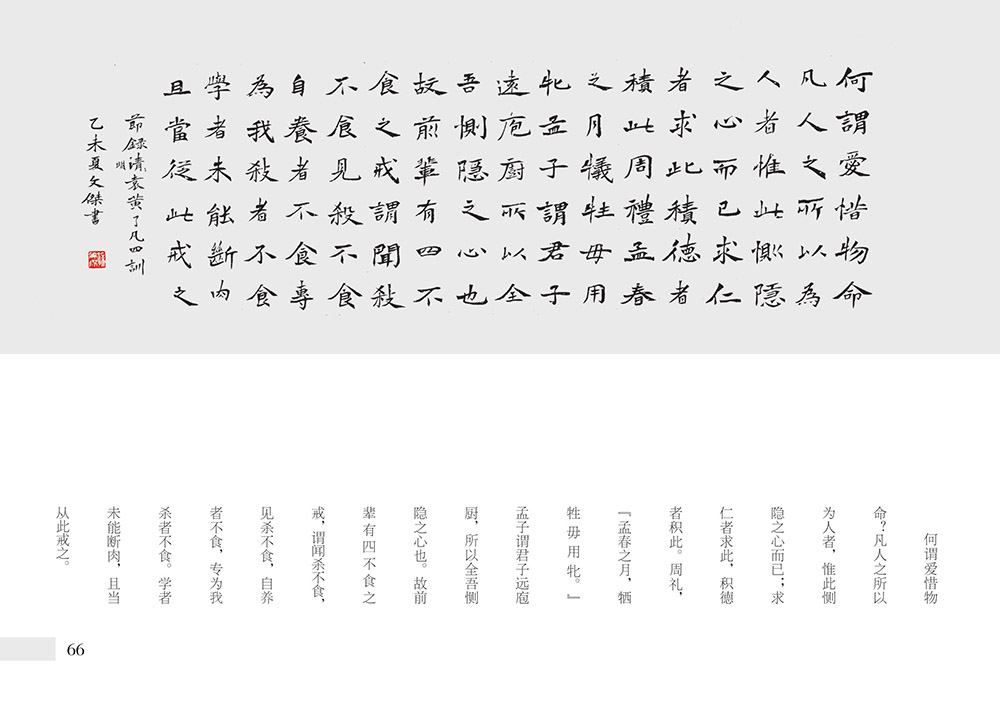 何謂愛惜物命
凡人之所以為
人者惟此惻隱
之心而已求仁
者求此積德者
積此周禮孟春
之月犧牲毋用
牝孟子謂君子
遠庖廚所以全
吾惻隱之心也
故前輩有四不
食之戒謂聞殺
不食見殺不食
自養者不食專
為我殺者不食
學者未能斷肉
且當從此戒之
節錄清袁黃了凡四訓
明
乙未夏文傑書
何谓爱惜物
命？凡人之所以
为人者，惟此恻
隐之心而已；求
仁者求此，积德
者积此。周礼，
『孟春之月，牺
牲毋用牝。』
孟子谓君子远庖
厨，所以全吾恻
隐之心也。故前
辈有四不食之
戒，谓闻杀不食，
见杀不食，自养
者不食，专为我
杀者不食。学者
未能断肉，且当
从此戒之。
66